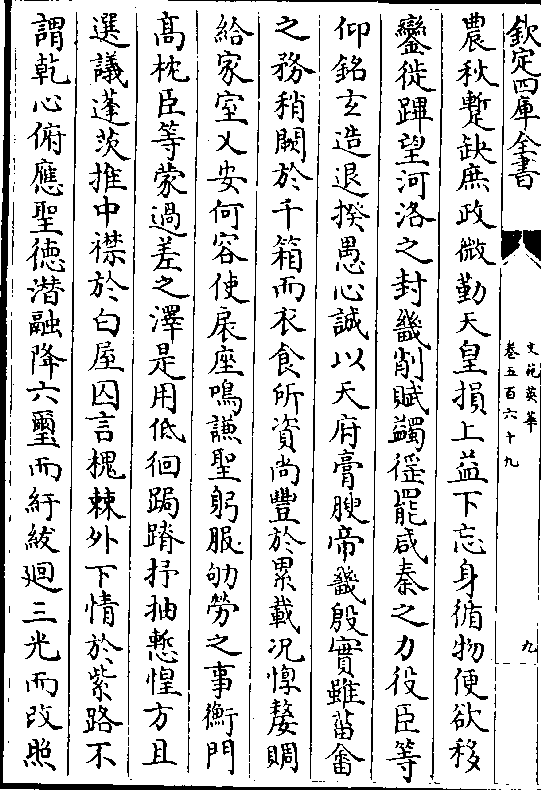 欽定四庫全書
文苑英華
卷五百六十九
九
農秋蹔缺庶政微勤天皇損上益下忘身循物便欲移
鑾徙蹕望河洛之封畿削賦蠲徭罷咸秦之力役臣等
仰銘玄造退揆愚心誠以天府膏腴帝畿殷實雖菑畬
之務稍闕於千箱而衣食所資尚豐於累載况惸嫠賙
給家室乂安何容使扆座鳴謙聖躬服劬勞之事衡門
髙枕臣等蒙過差之澤是用低徊跼蹐抒抽慙惶方且
選議蓬茨推中襟於白屋囚言槐棘外下情於紫路不
謂乾心俯應聖德潜融降六璽而紆紱廻三光而改照